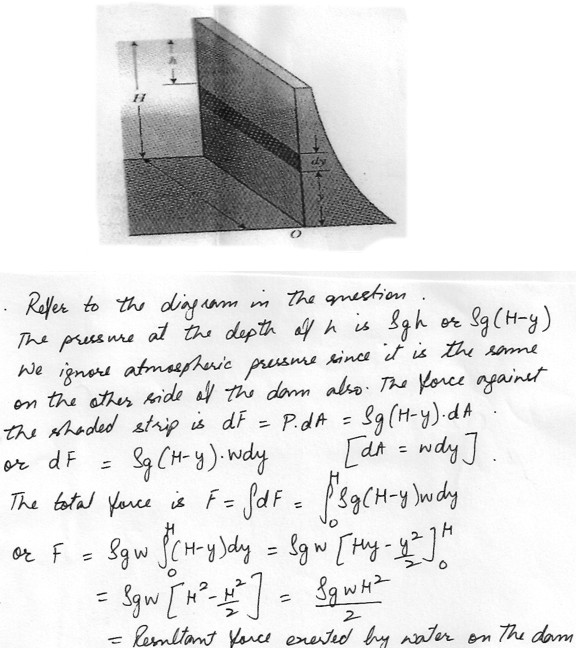 h
H
dy
y
O
. Refer to the diagram in the question.
The pressure at the depth of h is ρgh or ρg(H-y)
We ignore atmospheric pressure since it is the same
on the other side of the dam also. The force against
the shaded strip is dF = P.dA = ρg(H-y).dA .
or dF = ρg(H-y).wdy [dA = wdy].
The total force is F = ∫dF = ∫₀ᴴ ρg(H-y)wdy
or F = ρgw ∫₀ᴴ (H-y)dy = ρgw [Hy - y²/2]₀ᴴ
= ρgw [H² - H²/2] = ρgwH²/2
= Resultant force exerted by water on the dam